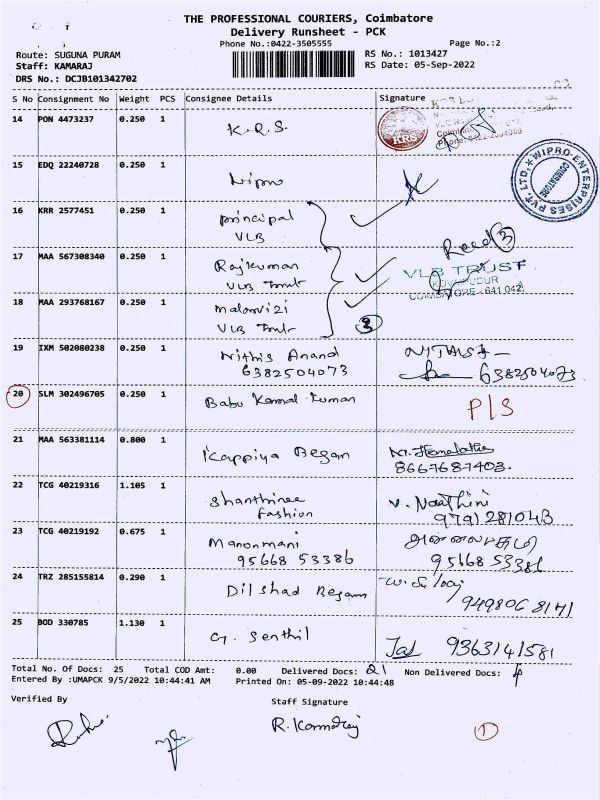 THE PROFESSIONAL COURIERS, Coimbatore
Delivery Runsheet - PCK
Phone No.:0422-3505555 Page No.:2
Route: SUGUNA PURAM RS No.: 1013427
Staff: KAMARAJ RS Date: 05-Sep-2022
DRS No.: DCJB101342702
S No Consignment No Weight PCS Consignee Details Signature
14 PON 4473237 0.250 1 K.R.S. KRS
15 EDQ 22240728 0.250 1 Wipro
WIPRO ENTERPRISES PVT. LTD. COIMBATORE
16 KRR 2577451 0.250 1 principal
VLB
Recd 3
17 MAA 567308340 0.250 1 Rajkumar
VLB Trust
VLB TRUST
KOVAIPUDUR
COIMBATORE - 641 042
18 MAA 293768167 0.250 1 malarvizi
VLB Trust
3
19 IXM 502080238 0.250 1 Nithis Anand
6382504073 6382504073
20 SLM 302496705 0.250 1 Babu Kamal Kumar P/S
21 MAA 563381114 0.800 1 Kappiya Began N. Hemalatha
8667687403.
22 TCG 40219316 1.105 1 Shanthinee
fashion
9791281043
23 TCG 40219192 0.675 1 Manonmani
95668 53386 95668 53386
24 TRZ 285155814 0.290 1 Dilshad Begam
9498068171
25 BOD 330785 1.130 1 G. Senthil 9363141581
Total No. Of Docs: 25 Total COD Amt: 0.00 Delivered Docs: 21 Non Delivered Docs: 4
Entered By :UMAPCK 9/5/2022 10:44:41 AM Printed On: 05-09-2022 10:44:48
Verified By Staff Signature
R. Kamaraj
1